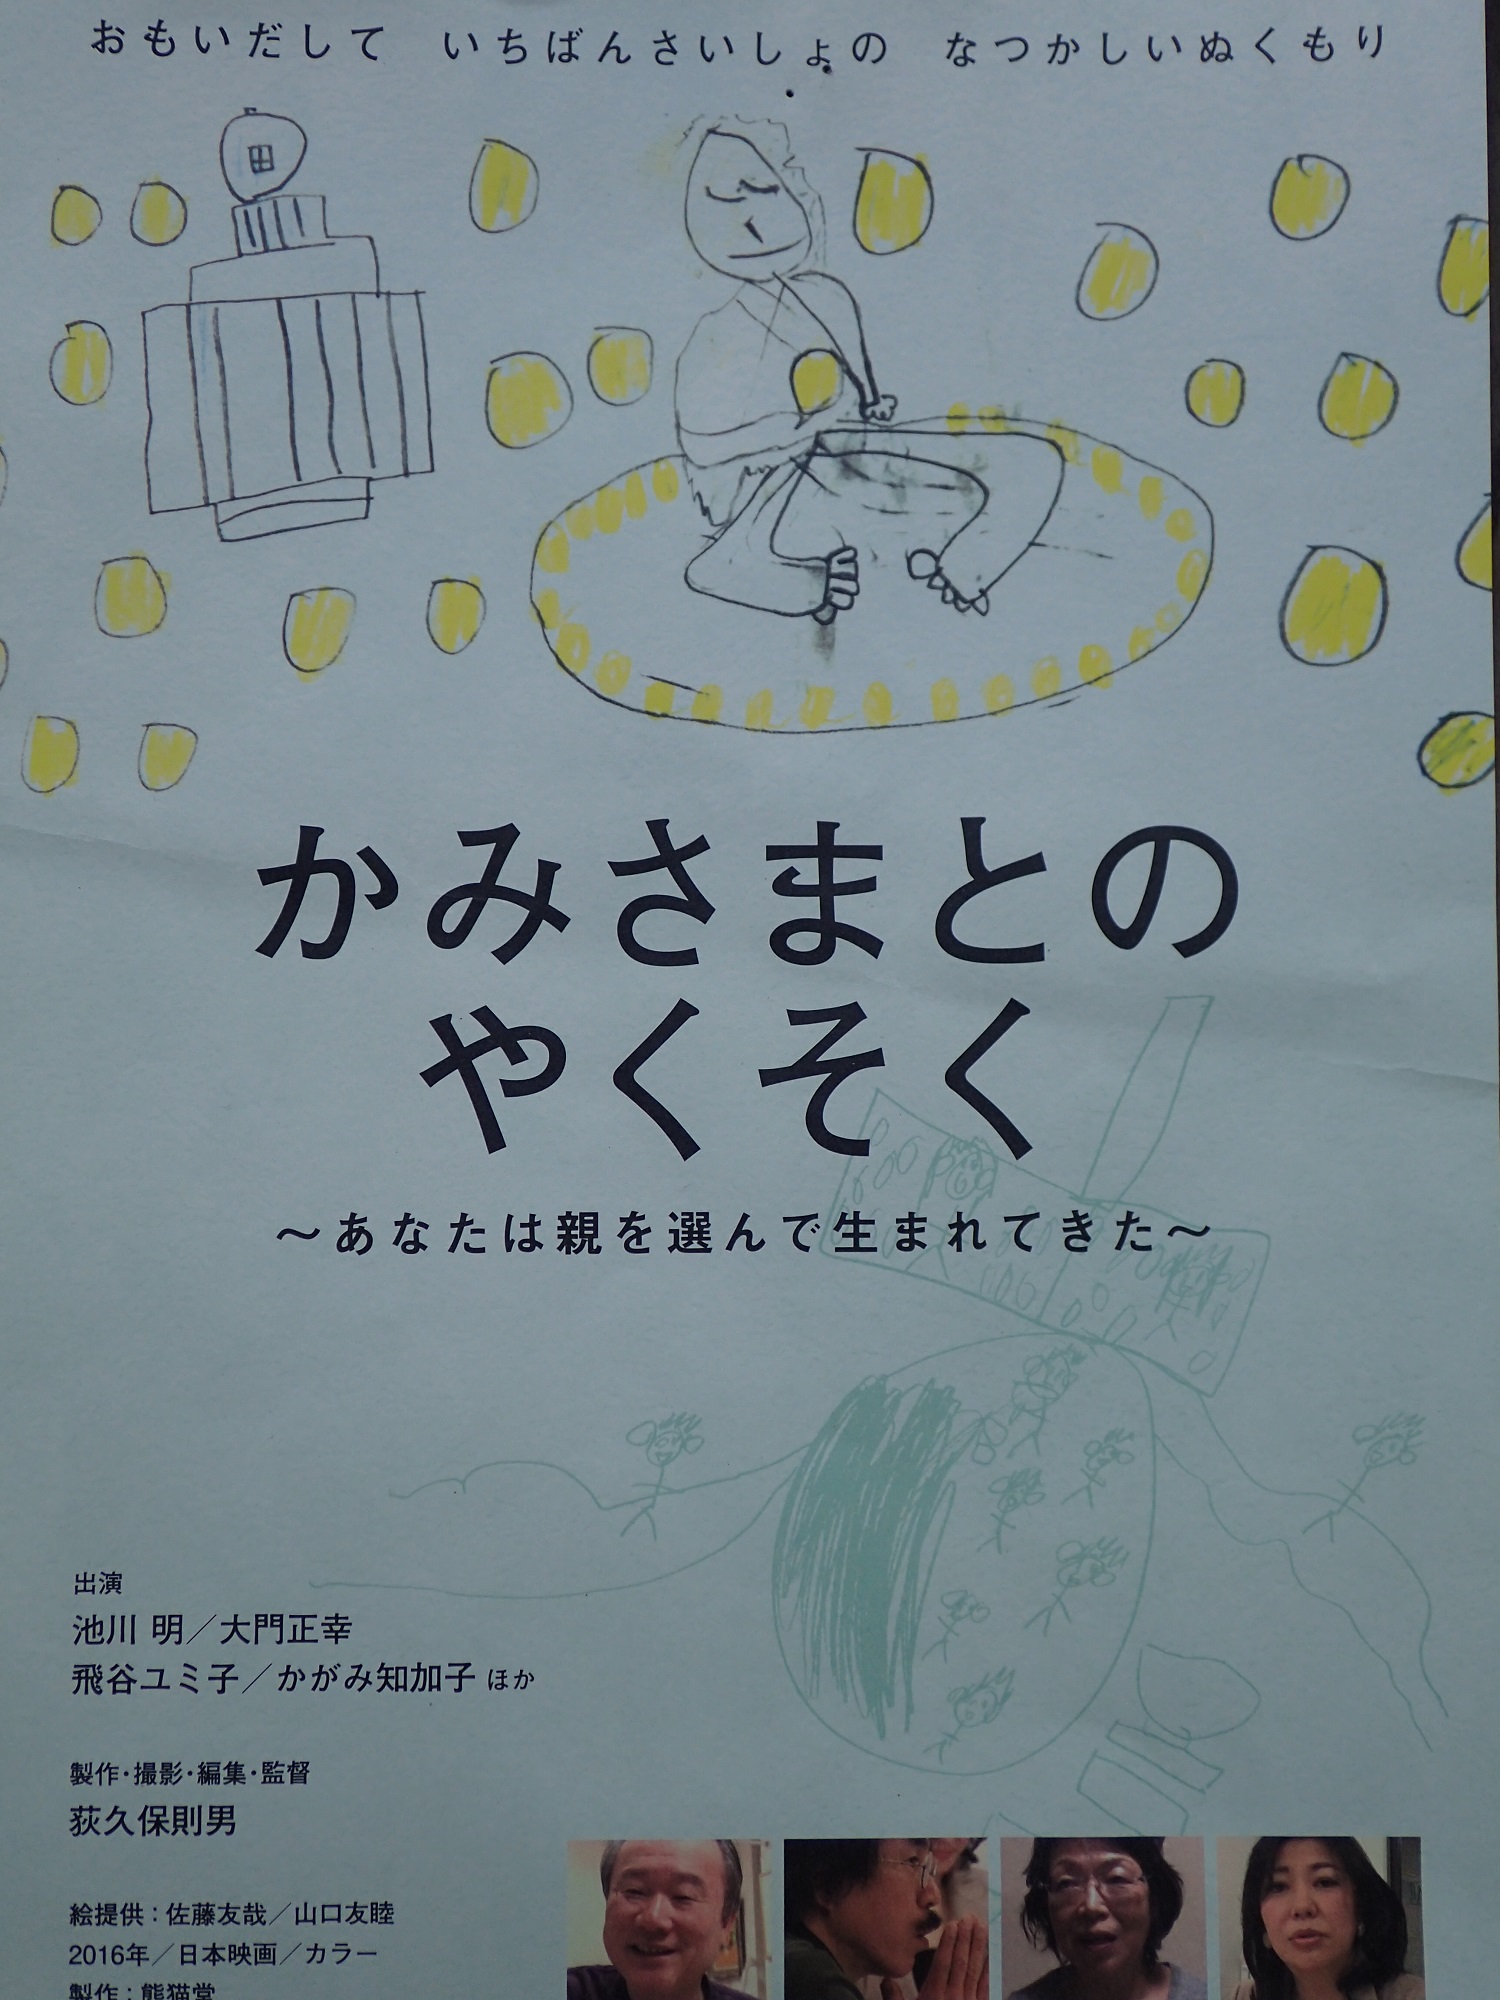 おもいだして　いちばんさいしょの　なつかしいぬくもり
かみさまとの
やくそく
～あなたは親を選んで生まれてきた～
出演
池川 明／大門正幸
飛谷ユミ子／かがみ知加子 ほか
製作・撮影・編集・監督
荻久保則男
絵提供：佐藤友哉／山口友睦
2016年／日本映画／カラー
製作：熊猫堂